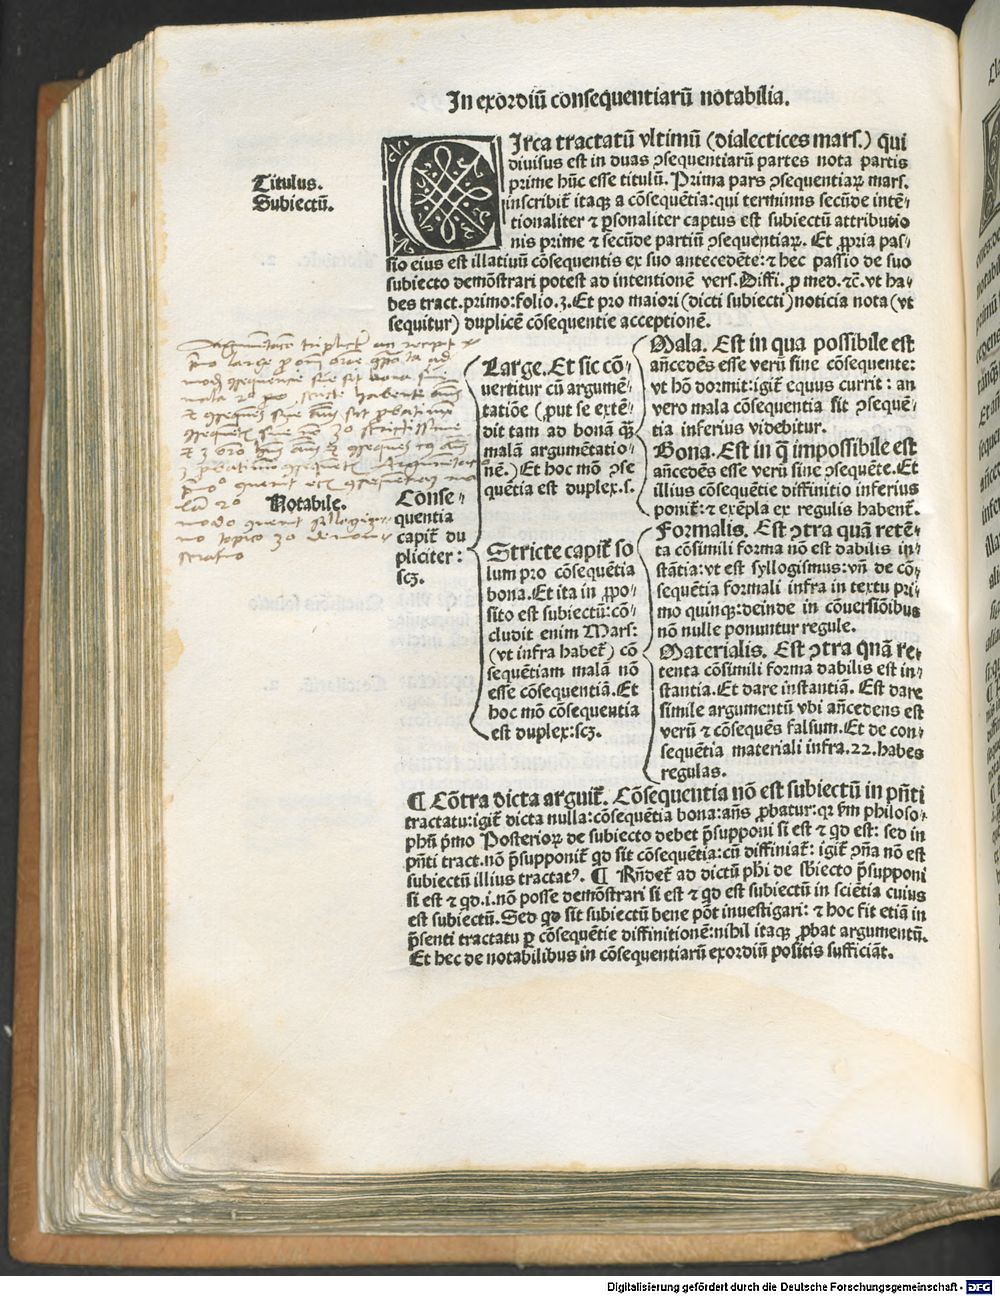 In exordiū consequentiarū notabilia.
Titulus.
Subiectū.
CIrca tractatū vltimū (dialectices mars.) qui
diuisus est in duas ꝯsequentiarū partes nota partis
prime hūc esse titulū. Prima pars ꝯsequentiaꝝ mars.
inscribit̄ itaqꝫ a cōsequētia: qui terminus secūde intē⸗
tionaliter ⁊ ꝑsonaliter captus est subiectū attributio
nis prime ⁊ secūde partiū ꝯsequentiaꝝ. Et ꝓpria pas⸗
sio eius est illatiuū cōsequentis ex suo antecedēte: ⁊ hec passio de suo
subiecto demōstrari potest ad intentionē vers. Diffi. ꝑ med. ⁊c̄. vt ha⸗
bes tract. primo: folio. 3. Et pro maiori (dicti subiecti) noticia nota (vt
sequitur) duplicē cōsequentie acceptionē.
Notabile.
Conse⸗
quentia
capit̄ du
pliciter:
scꝫ.
Large. Et sic cō⸗
uertitur cū argumē⸗
tatiōe (put se extē⸗
dit tam ad bonā qꝫ̄
malā argumētatio⸗
nē.) Et hoc mō ꝯse
quētia est duplex. s.
Mala. Est in qua possibile est
an̄cedēs esse verū sine cōsequente:
vt hō dormit: igit̄ equus currit: an
vero mala cōsequentia sit ꝯsequē⸗
tia inferius videbitur.
Bona. Est in q̄ impossibile est
an̄cedēs esse verū sine ꝯsequēte. Et
illius cōsequētie diffinitio inferius
ponit̄: ⁊ exēpla ex regulis habent̄.
Stricte capit̄ so
lum pro cōsequētia
bona. Et ita in ꝓpo⸗
sito est subiectū: cō⸗
cludit enim Mars:
(vt infra habet̄) cō
sequētiam malā nō
esse cōsequentiā. Et
hoc mō cōsequentia
est duplex: scꝫ.
Formalis. Est ꝯtra quā retē⸗
ta cōsimili forma nō est dabilis in⸗
stātia: vt est syllogismus: vn̄ de cō⸗
sequētia formali infra in textu pri⸗
mo quinqꝫ: deinde in cōuersiōibus
nō nulle ponuntur regule.
Materialis. Est ꝯtra quā re⸗
tenta cōsimili forma dabilis est in⸗
stantia. Et dare instantiā. Est dare
simile argumentū vbi an̄cedens est
verū ⁊ cōsequēs falsum. Et de con⸗
sequētia materiali infra. 22. habes
regulas.
¶ Cōtra dicta arguit̄. Cōsequentia nō est subiectū in pn̄ti
tractatu: igit̄ dicta nulla: cōsequētia bona: an̄s ꝓbatur: qꝛ ẜm philoso⸗
phū p̄mo Posterioꝝ de subiecto debet p̄supponi si est ⁊ qd est: sed in
pn̄ti tract. nō p̄supponit̄ qd sit cōsequētia: cū diffiniat̄: igit̄ ꝯn̄a nō est
subiectū illius tractatꝰ. ¶ Rn̄det̄ ad dictū phi de sbiecto p̄supponi
si est ⁊ qd. i. nō posse demōstrari si est ⁊ qd est subiectū in sciētia cuius
est subiectū. Sed qd sit subiectū bene pōt inuestigari: ⁊ hoc fit etiā in
p̄senti tractatu ꝑ cōsequētie diffinitionē: nihil itaqꝫ ꝓbat argumentū.
Et hec de notabilibus in cōsequentiarū exordiū positis sufficiāt.
Digitalisierung gefördert durch die Deutsche Forschungsgemeinschaft - DFG